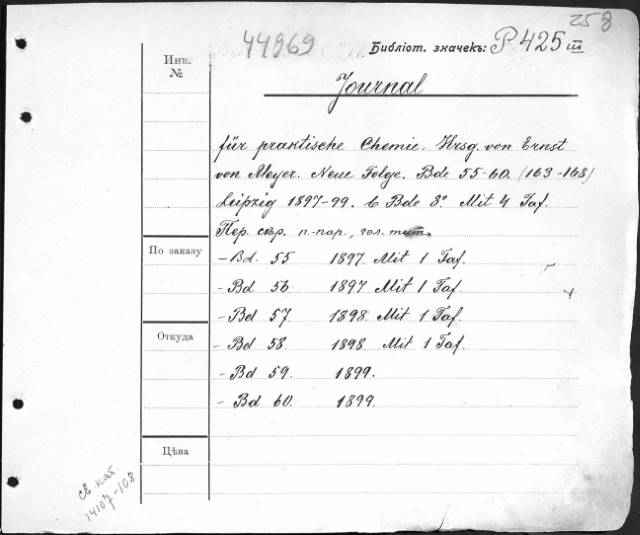 258
44969 Библіот. значекъ: P425 III
Инв.
№
Journal
für praktische Chemie. Hrsg. von Ernst
von Meyer. Neue Folge. Bde 55-60. (163-168)
Leipzig 1897-99. 6 Bde 8º. Mit 4 Taf.
Пер. п.-пар., гол.
По заказу
- Bd. 55 1897. Mit 1 Taf.
- Bd 56. 1897 Mit 1 Taf.
- Bd 57. 1898. Mit 1 Taf.
Откуда
- Bd 58. 1898. Mit 1 Taf.
- Bd 59. 1899.
- Bd 60. 1899.
Цѣна
св. кат.
14107-108